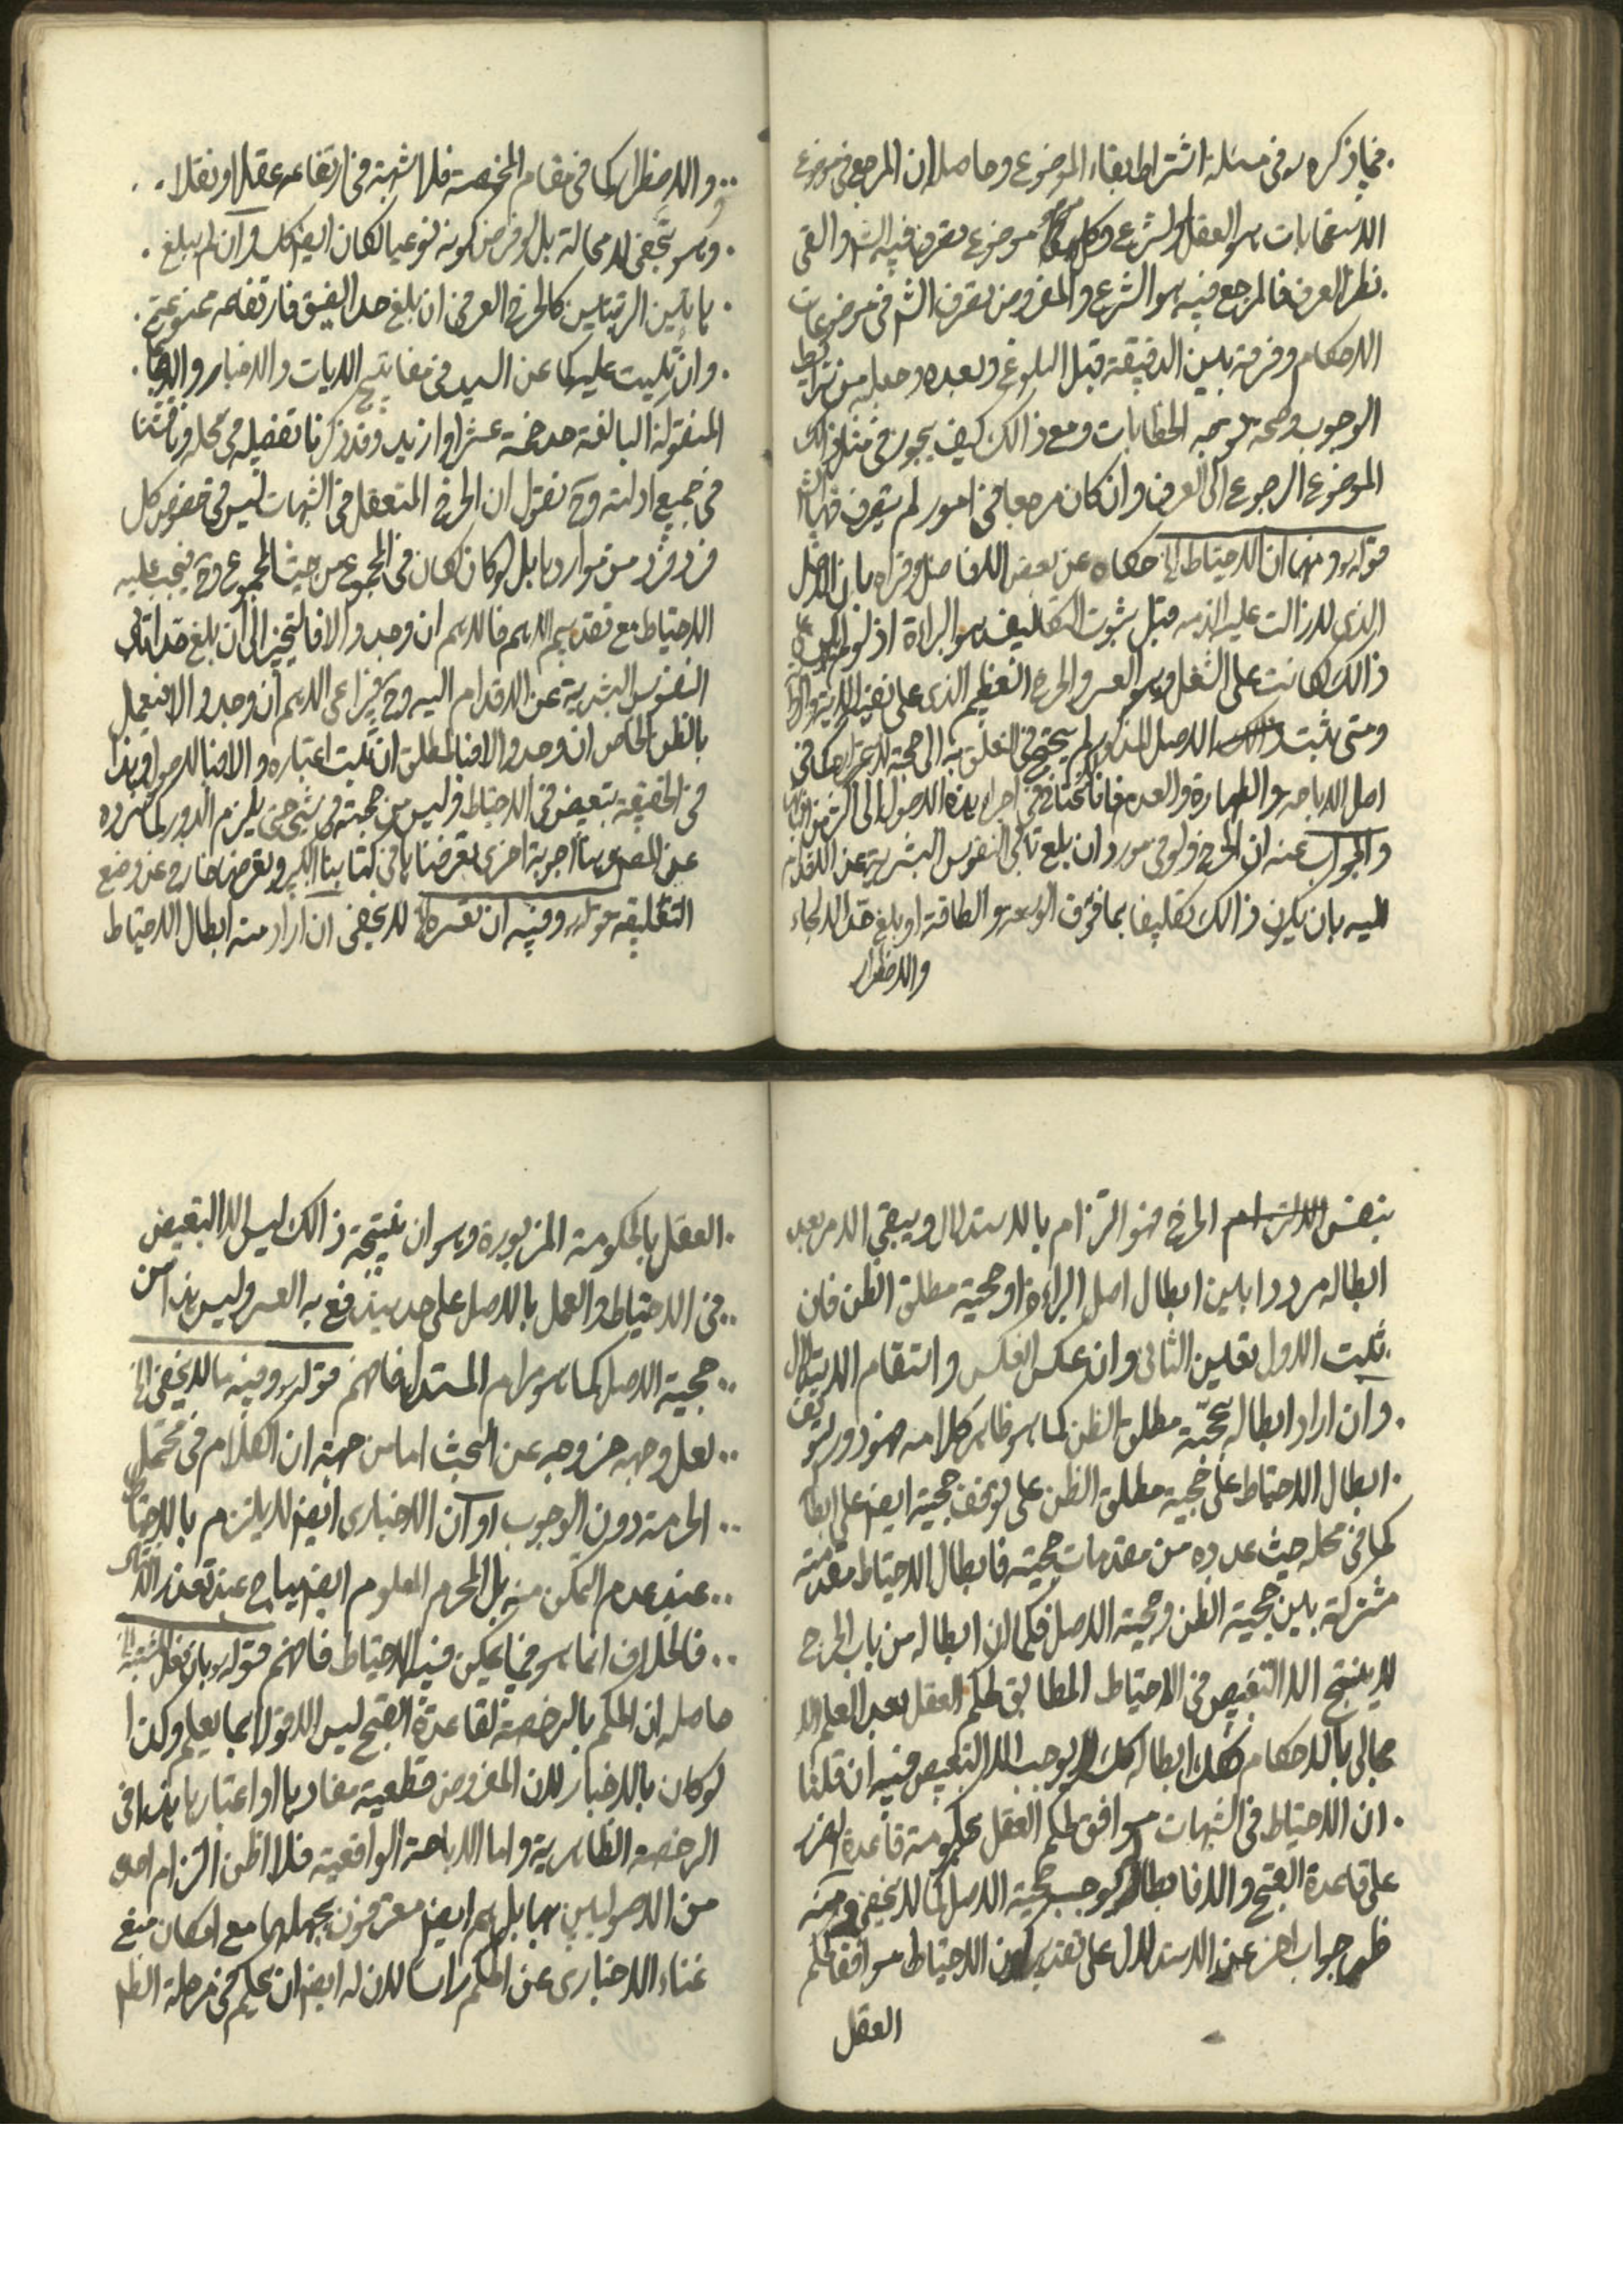 فيما ذكره ره فى مسئلة اشتراط بقاء الموضوع وحاصله ان المرجع فى موضوع
الاستصحابات هو العقل والشرع وكل موضوع تصرف فيه الش والقى
نظر العرف فالمرجع فيه هو الشرع والمفروض تصرف الش فى موضوعات
الاحكام وفرقه بين الدقيقة قبل البلوغ وبعده وجعله من شرايط
الوجوب وصحة توجه الخطابات ومع ذالك كيف يجوز فى مثل ذلك
الموضوع الرجوع الى العرف وان كان مرجعا فى امور لم يتصرف فيها الش
قوله ره ومنها ان الاحتياط الخ حكاه عن بعض الافاضل وقراه بان الاصل
الذى لا زالت عليه الذمه قبل ثبوت التكليف هو البراءة اذ لو لم يكن
ذالك لكانت على الثقل وهو العسر والحرج العظيم الذى على نفيه الاية والرواية
ومتى ثبت الاصل المذكور لم يحتج فى التعلق به الى حجة لاعتباره كما فى
اصل الاباحه والطهارة والعدم فانا لا نحتاج فى اجراء هذه الاصول الى اكثر من
والجواب عنه ان الحرج ولو فى مورد ان بلغ تابى النفوس البشرية عن الاقدام
اليه بان يكون ذالك تكليفا بما فوق الوسعه والطاقة او بلغ حد الالجاء
والاضطرار
والاضطرار كما فى مقام المخمصة فلا شبهة فى ارتفاعه عقلا ونقلا
وهو شخصى لا محالة بل لو فرض كونه نوعيا لكان ايض كك وان لم يبلغ
هاتين الرتبتين كالحرج العرفى ان بلغ حد الضيق فارتفاعه ممنوعة
وان تليت عليها كما عن السيد فى مفاتيح الايات والاخبار والاجماعات
المنقولة البالغة حد خمسة عشر او ازيد وقد ذكرنا تفصيله فى محله وناقشنا
فى جميع ادلته وح نقول ان الحرج المتعقل فى الشبهات ليس فى خصوص كل
فرد فرد من مواردها بل لو كان لكان فى المجموع من حيث المجموع وح فيجب عليه
الاحتياط مع تقديم الاهم فالاهم ان وجد والا فالتخيير الى ان بلغ حد اتابى
النفوس البشرية عن الاقدام اليه وح فيراعى الاهم ان وجد والا فيعمل
بالظن الخاص ان وجد والا فبالمطلق ان ثبت اعتباره والا فبالاصول وهذا
فى الحقيقة تبعيض فى الاحتياط وليس من حجية فى شىء حتى يلزم الدور كما سرده
عن المصره وهنا اجوبة اخرى تعرضناها فى كتابنا الكبير وتعرضها خارج عن وضع
التعليقه قوله ره وفيه ان تعسره الخ لا يخفى ان اراد منه ابطال الاحتياط
بنفس الحرج فهو التزام بالاستدلال ويبقى الامر بعد
ابطاله مرددا بين ابطال اصل البراءة او حجية مطلق الظن فان
ثبت الاول تعين الثانى وان عكس انعكس واستقام الاستدلال
وان اراد ابطاله بحجية مطلق الظن كما هو ظاهر كلامه فهو دور لتوقف
ابطال الاحتياط على حجية مطلق الظن على توقف حجية ايض على ابطا
كما فى محله حيث عددوه من مقدمات حجيته فابطال الاحتياط مقدمته
مشتركة بين حجية الظن وحجية الاصل فكما ان ابطاله من باب الحرج
لا ينتج الا التبعيض فى الاحتياط المطابق لحكم العقل بعد العلم الا
جمالى بالاحكام كك ابطاله لا يوجب الا التبعيض فيه ان قلنا
ان الاحتياط فى الشبهات موافق لحكم العقل بحكومة قاعدة الضرر
على قاعدة القبح والا فابطاله يوجب حجية الاصل كما لا يخفى ومنه
ظهر جواب اخر عن الاستدلال على تقدير كون الاحتياط موافقا لحكم
العقل
العقل بالحكومة المزبورة وهو ان نتيجة ذالك ليس الا التبعيض
فى الاحتياط والعمل بالاصل على حد يندفع به العسر وليس هذا من
حجية الاصل كما هو مرام المستدل فافهم قوله ره وفيه ما لا يخفى الخ
لعل وجهه خروجه عن البحث اما من جهة ان الكلام فى محتمل
الحرمة دون الوجوب او ان الاخبارى ايض لا يلتزم بالاحتياط
عند عدم التمكن منه بل المحرم المعلوم ايض يباح عند تعذر
فالخلاف انما هو فيما يمكن فيه الاحتياط فافهم قوله ره بان فعل المشتبه الخ
حاصله ان الحكم بالرخصة لقاعدة القبح ليس الا قولا بما يعلم وكذا
لو كان بالاخبار لان المفروض قطعية مفادها او اعتبارها هذا فى
الرخصة الظاهرية واما الاباحة الواقعية فلا اظن التزام احد
من الاصوليين بها بل هم ايض معترفون بجهلها مع امكان منع
غناء الاخبارى عن الحكم راسا لان له ايض ان يحكم فى مرحلة الظ